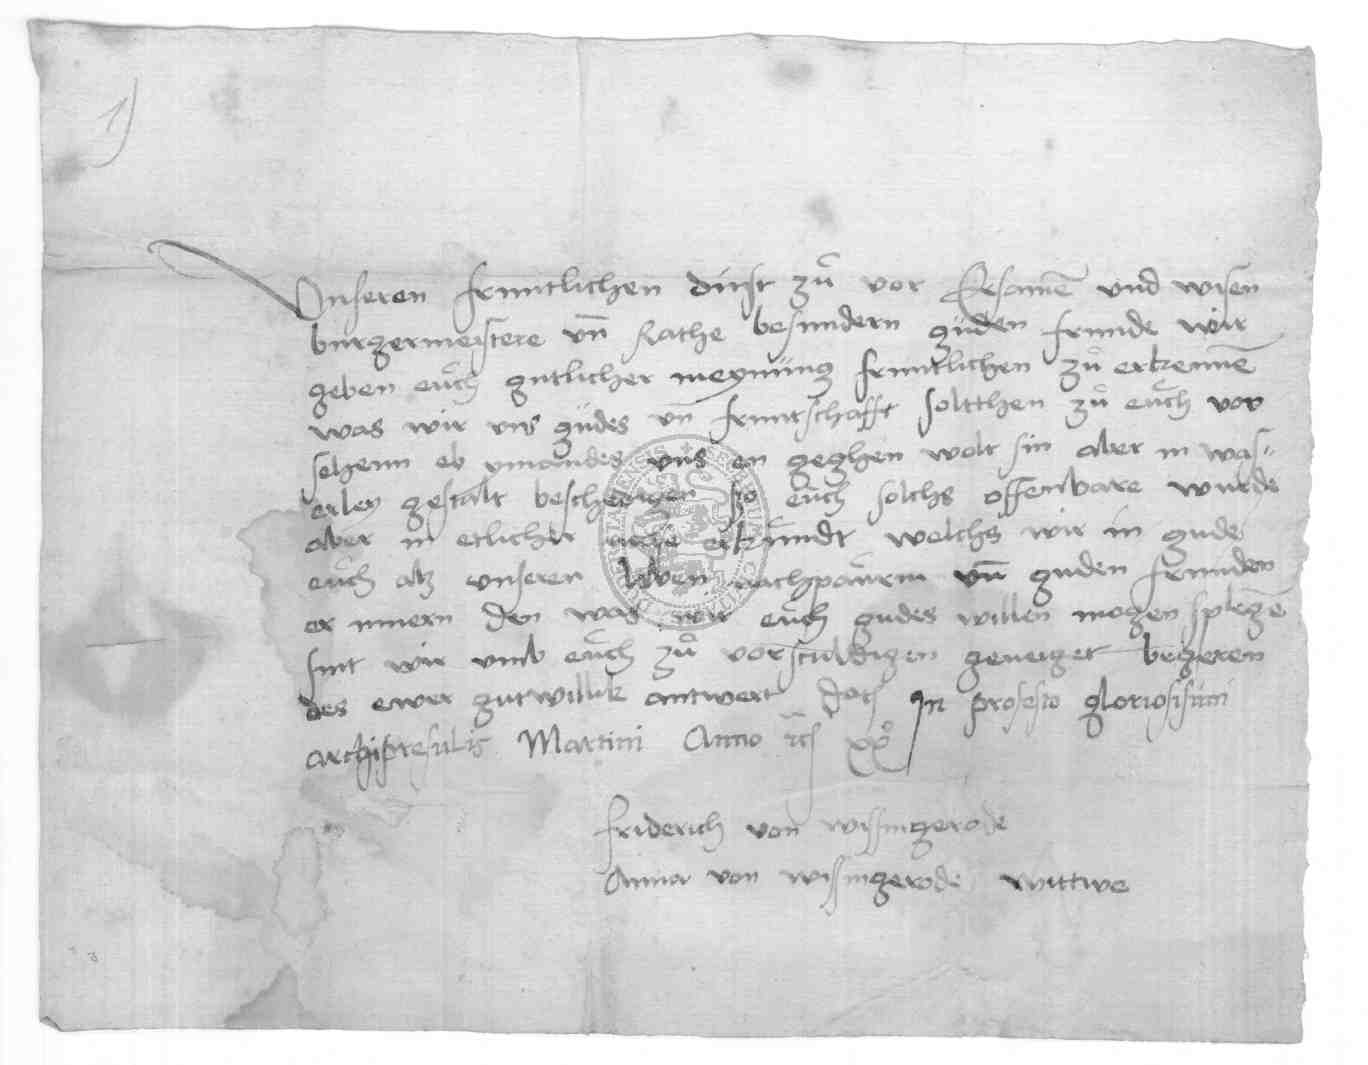 1)
Vnseren fruntlichen dinst zů vor Ersamē vnd wisen
burgermeistere vn̄ Rathe besundern guden frunde wir
geben euch gutlicher meynung fruntlichen zů erkennē
was wir vns gudes vn̄ fruntschafft soltthen zů euch vor
sehenn eb ymandes vns en geghen wolt sin aber in was-
erley gestalt beschedigen so euch solchs offenbare wurde
aber in etlicher erkundt welchs wir in gude
euch alz vnseren liben nachpaurn vn̄ guden frunden
er innern den was wir euch gudes willen mogen
sint wir vmb euch zů vorsculdigen geneiget begeren
des ewer gutwillik antwert dat In profesto gloriosissimi
archipresulis Martini Anno xxo
friderich von wissingerode
Anna von wisingerode wittwe